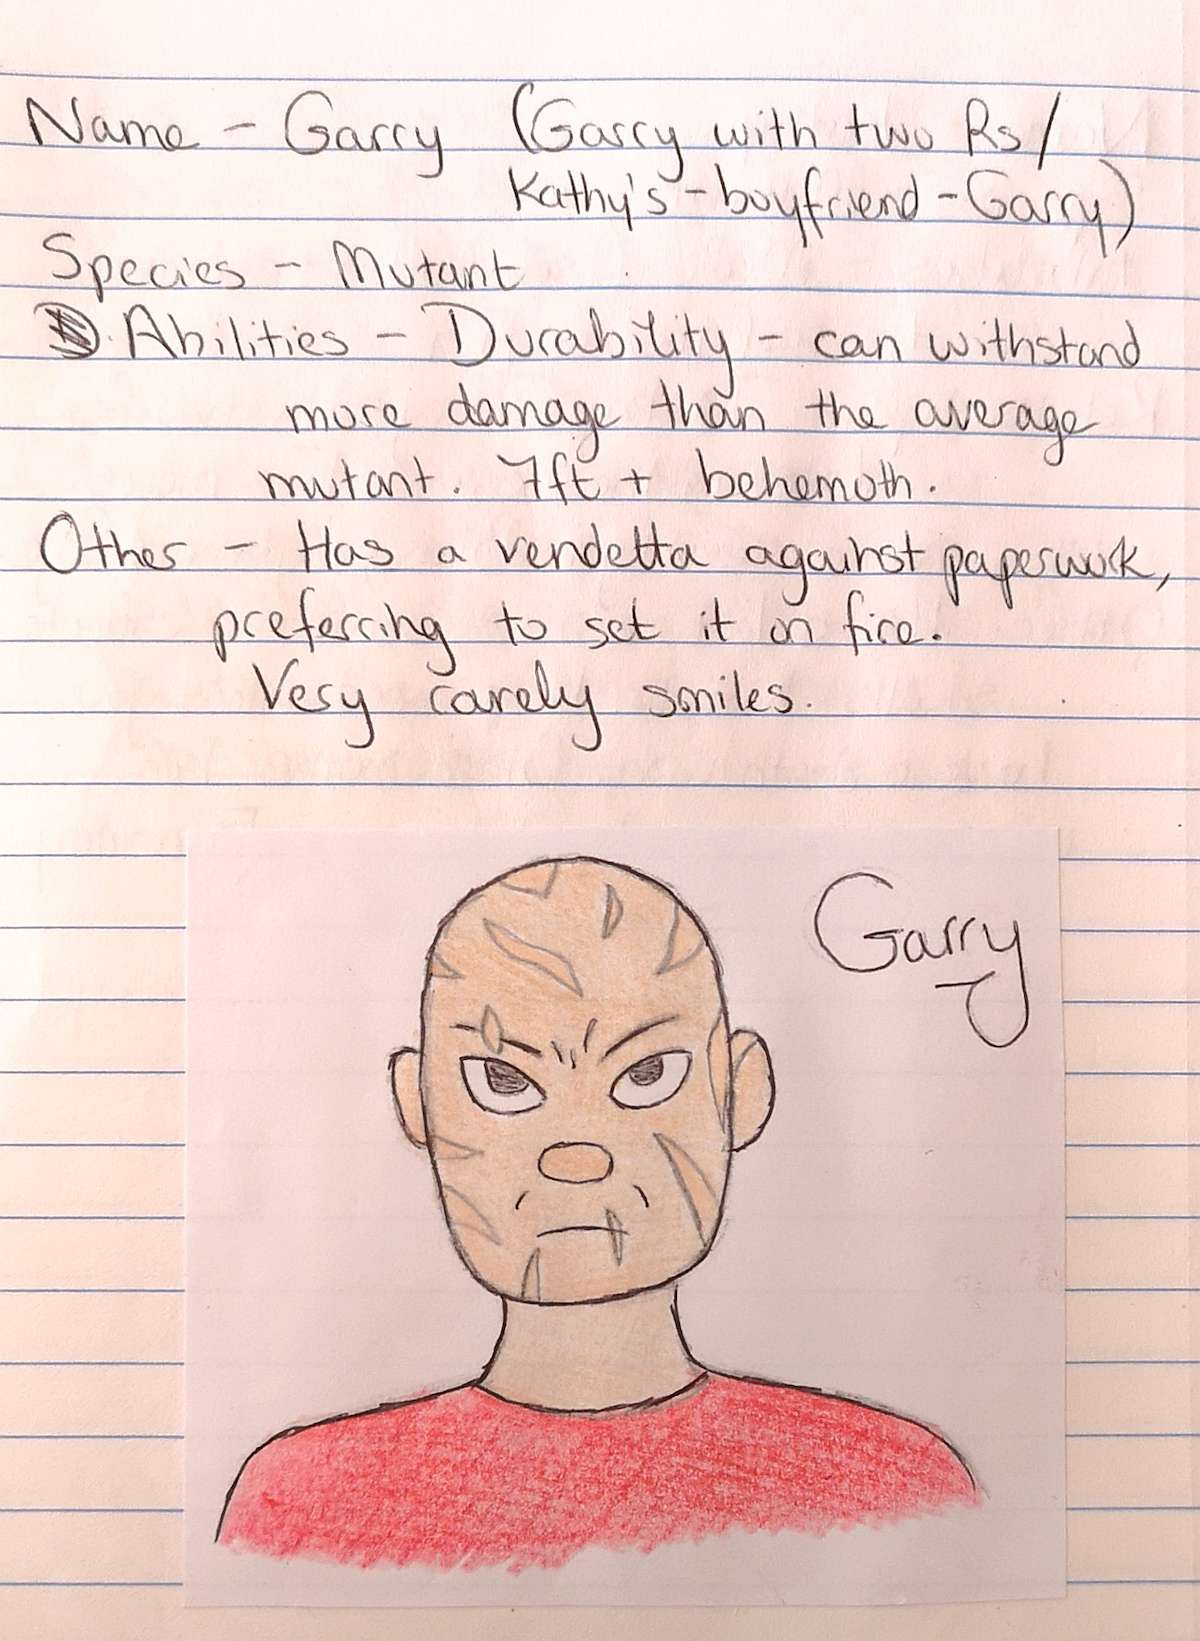 Name - Garry (Garry with two Rs/
Kathy's-boyfriend-Garry)
Species - Mutant
Abilities - Durability - can withstand
more damage than the average
mutant. 7ft + behemoth.
Other - Has a vendetta against paperwork,
preferring to set it on fire.
Very rarely smiles.
Garry